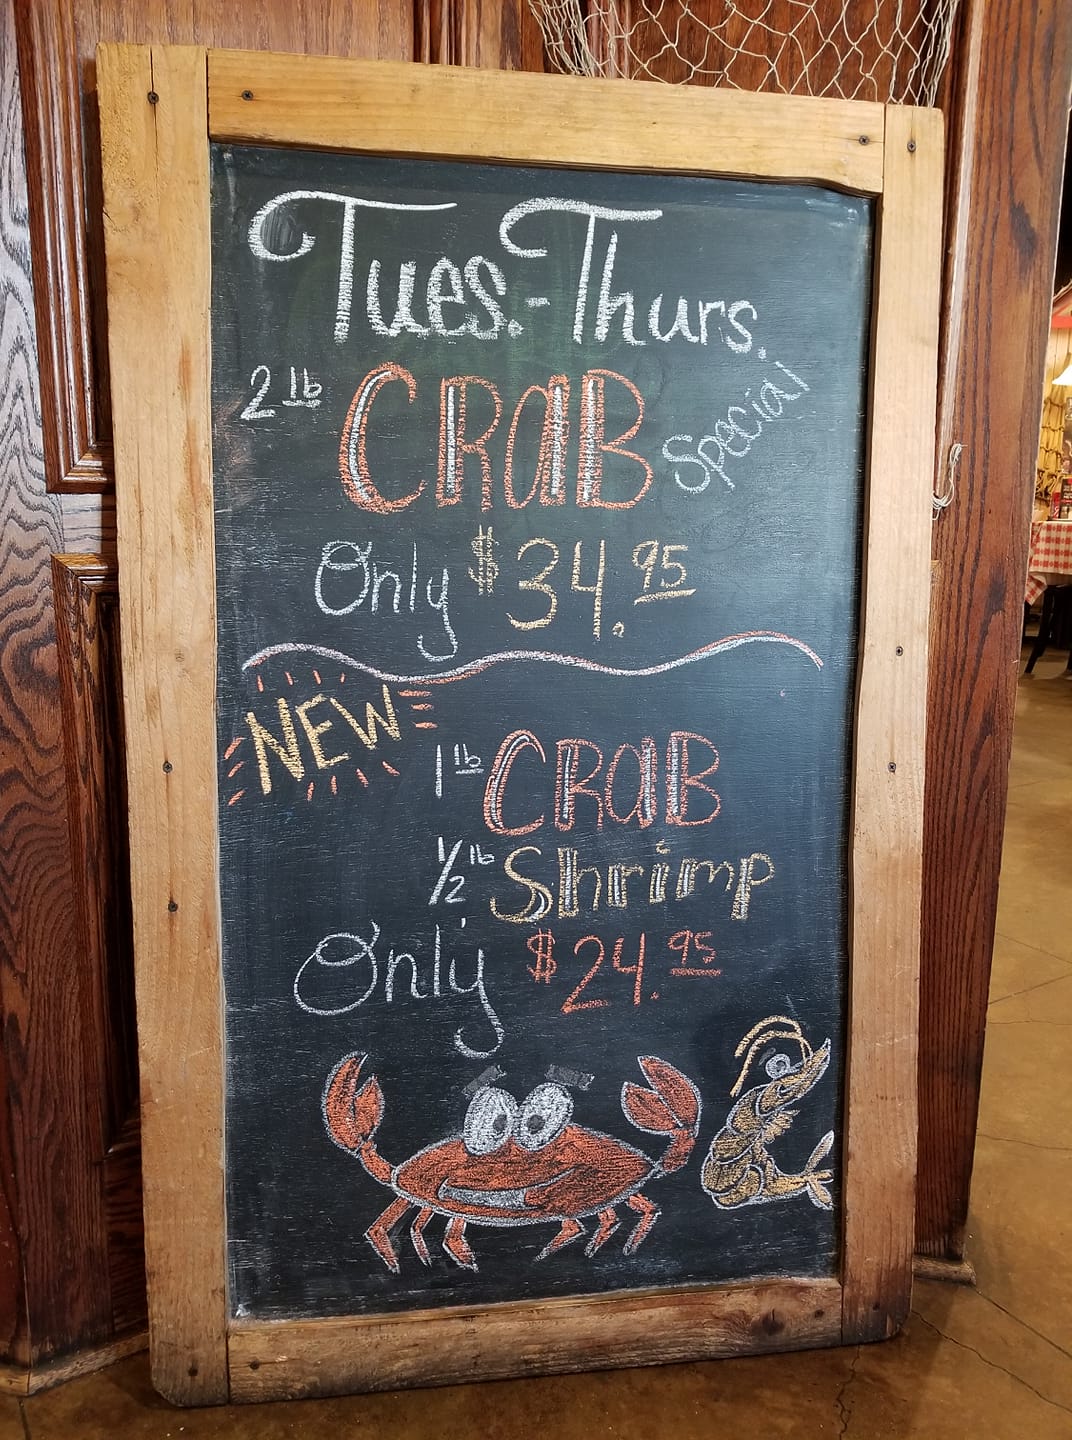 Tues.-Thurs.
2 lb CRaB Special
Only $34.95
NEW
1 lb CRaB
1/2 lb Shrimp
Only $24.95